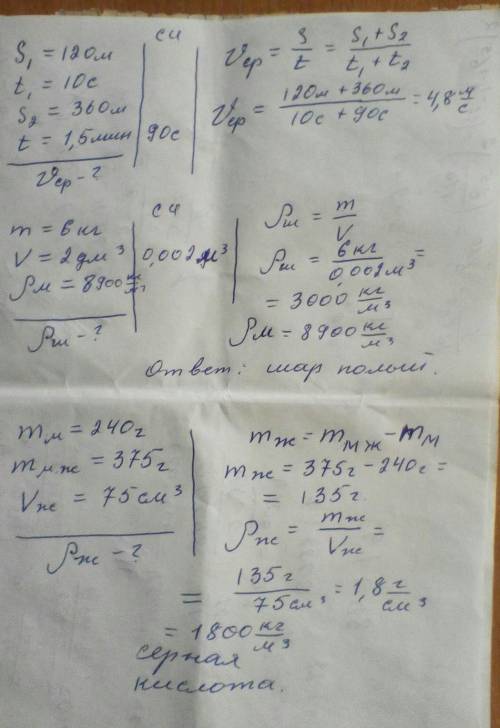 СИ
S₁ = 120м
t₁ = 10с
S₂ = 360м
t = 1,5мин | 90с
Vср - ?
Vср = S/t = (S₁ + S₂)/(t₁ + t₂)
Vср = (120м + 360м)/(10с + 90с) = 4,8 м/с
СИ
m = 6кг
V = 2дм³ | 0,002м³
ρм = 8900 кг/м³
ρш - ?
ρш = m/V
ρш = 6кг/0,002м³ =
= 3000 кг/м³
ρм = 8900 кг/м³
Ответ: шар полый.
mм = 240г
mмж = 375г
Vж = 75см³
ρж - ?
mж = mмж - mм
mж = 375г - 240г =
= 135г
ρж = mж/Vж =
= 135г/75см³ = 1,8 г/см³
= 1800 кг/м³
серная
кислота.